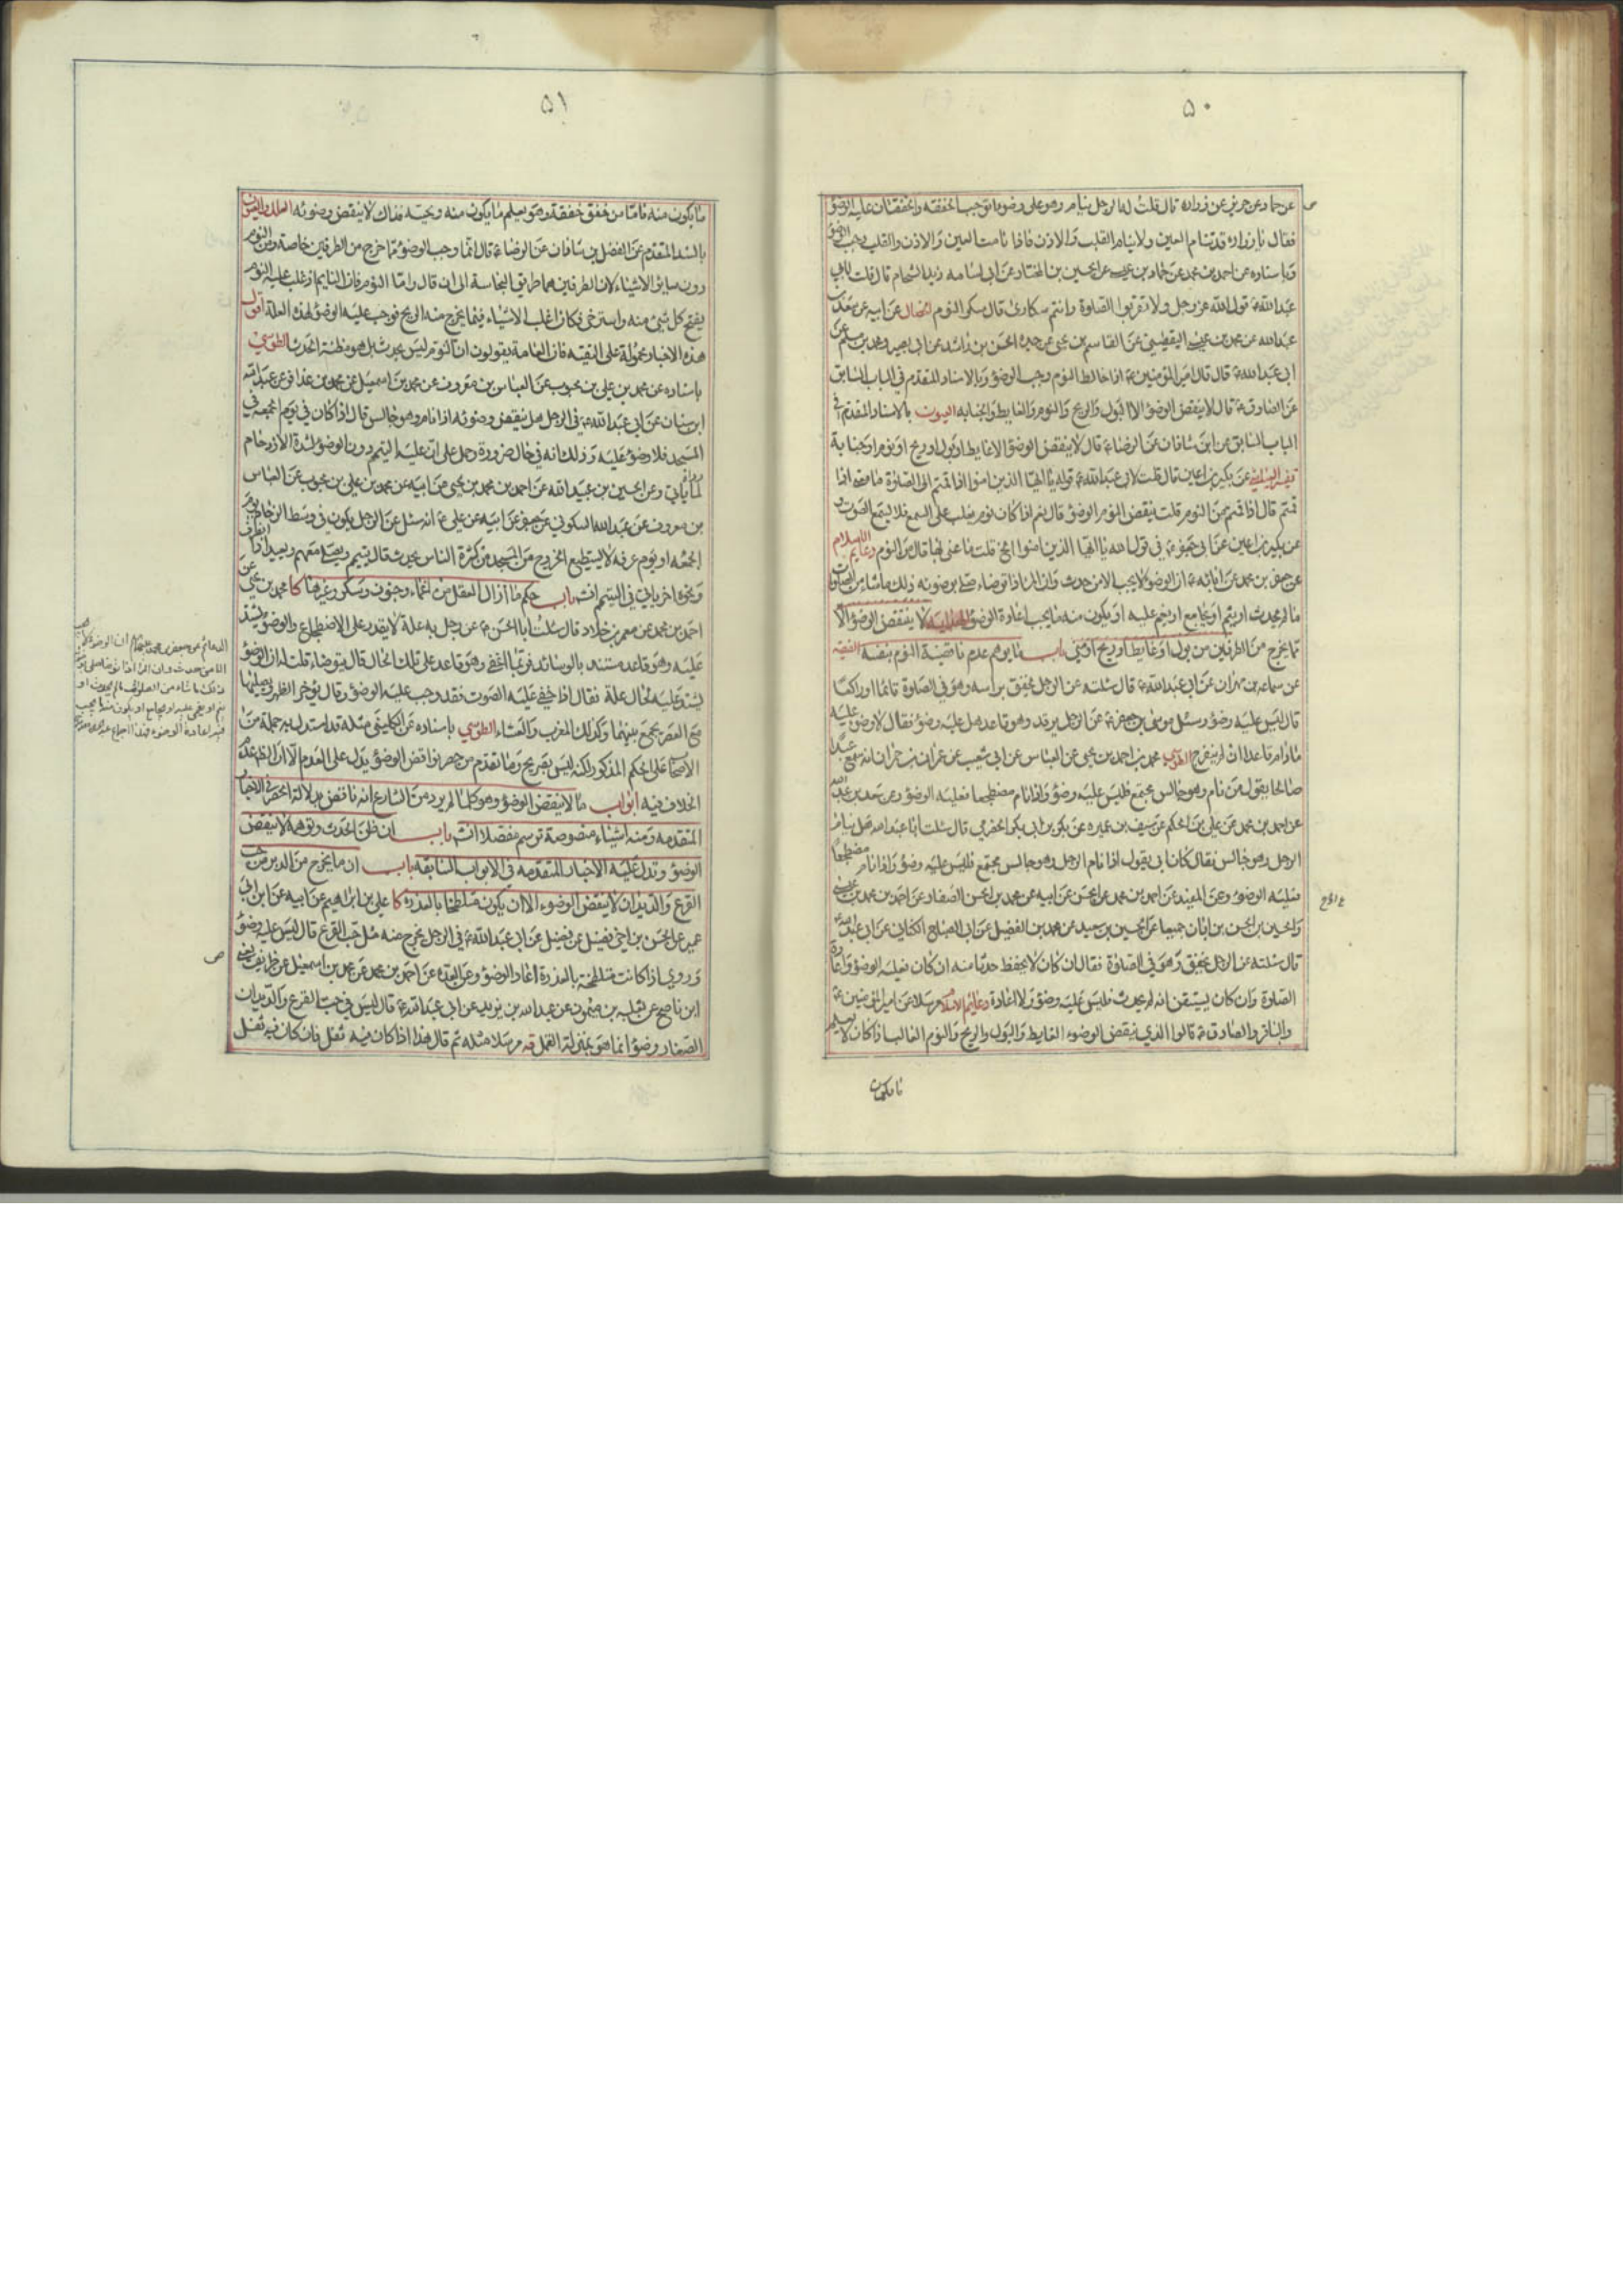 ٥٠
عن حماد عن حريز عن زرارة قال قلت له الرجل ينام وهو على وضوء توجب الخفقة والخفقتان عليه الوضوء
فقال يا زرارة قد تنام العين ولا ينام القلب والاذن فاذا نامت العين والاذن والقلب وجب الوضوء
وباسناده عن احمد بن محمد عن حماد بن عيسى عن الحسين بن المختار عن ابي اسامه زيد الشحام قال قلت لابي
عبد الله ع قول الله عز وجل ولا تقربوا الصلوة وانتم سكارى قال سكر النوم الخصال عن ابيه عن سعد بن
عبد الله عن محمد بن عيسى اليقطيني عن القاسم بن يحيى عن جده الحسن بن راشد عن ابي بصير ومحمد بن مسلم عن
ابي عبد الله ع قال قال امير المؤمنين ع اذا خالط النوم وجب الوضوء وبالاسناد المتقدم في الباب السابق
عن الصادق ع قال لا ينقض الوضوء الا البول والريح والنوم والغايط والجنابه العيون بالاسناد المتقدم في
الباب السابق عن ابن شاذان عن الرضا ع قال لا ينقض الوضوء الا غايط او بول او ريح او نوم او جنابة
عن بكير بن اعين قال قلت لابي عبد الله ع قوله يا ايها الذين امنوا اذا قمتم الى الصلوة ما معنى اذا
قمتم قال اذا قمتم من النوم قلت ينقض النوم الوضوء قال نعم اذا كان نوم يغلب على السمع فلا يسمع الصوت و
عن بكير بن اعين عن ابي جعفر ع في قول الله يا ايها الذين امنوا الخ قلت ما عنى بها قال من النوم دعايم الاسلام
عن جعفر بن محمد عن ابائه ع ان الوضوء لا يجب الا من حدث وان المرء اذا توضاء صلى بوضوئه ذلك ما شاء من الصلوات
ما لم يحدث او ينم او يجامع او يغم عليه او يكون منه ما يجب اعادة الوضوء الهدايه لا ينقض الوضوء الا
مما يخرج من الطرفين من بول او غايط او ريح او مني باب ما يوهم عدم ناقضية النوم بنفسه الفقيه
عن سماعه بن مهران عن ابي عبد الله ع قال سئلته عن الرجل يخفق براسه وهو في الصلوة قائما او راكعا
قال ليس عليه وضوء وسئل موسى بن جعفر ع عن الرجل يرقد وهو قاعد هل عليه وضوء فقال لا وضوء عليه
ما دام قاعدا ان لم ينفرج الطوسي محمد بن احمد بن يحيى عن العباس عن ابي شعيب عن عمران بن حمران انه سمع عبدا
صالحا يقول من نام وهو جالس مجتمع فليس عليه وضوء واذا نام مضطجعا فعليه الوضوء وعن سعد بن عبد الله
عن احمد بن محمد عن علي بن الحكم عن سيف بن عميره عن بكر بن ابي بكر الحضرمي قال سئلت ابا عبد الله هل ينام
الرجل وهو جالس فقال كان ابي يقول اذا نام الرجل وهو جالس مجتمع فليس عليه وضوء واذا نام مضطجعا
فعليه الوضوء وعن المفيد عن احمد بن محمد بن الحسن عن ابيه عن محمد بن الحسن الصفار عن احمد بن محمد بن عيسى
والحسين بن الحسن بن ابان جميعا عن الحسين بن سعيد عن محمد بن الفضيل عن ابي الصباح الكناني عن ابي عبد الله ع
قال سئلته عن الرجل يخفق وهو في الصلوة فقال ان كان لا يحفظ حدثا منه ان كان فعليه الوضوء واعادة
الصلوة وان كان يستيقن انه لم يحدث فليس عليه وضوء ولا اعادة دعايم الاسلام مرسلا عن امير المؤمنين ع
والباقر والصادق ع قالوا الذي ينقض الوضوء الغايط والبول والريح والنوم الغالب اذا كان لا يعلم
ما يكون
٥١
ما يكون منه فاما من خفق خفقة وهو يعلم ما يكون منه ويحسه فذاك لا ينقض وضوئه العلل والعيون
بالسند المتقدم عن الفضل بن شاذان عن الرضا ع قال انما وجب الوضوء مما خرج من الطرفين خاصة ومن النوم
دون ساير الاشياء لان الطرفين هما طريق النجاسة الى ان قال واما النوم فان النايم اذ غلب عليه النوم
يفتح كل شئ منه واسترخى فكان اغلب الاشياء فيما يخرج منه الريح فوجب عليه الوضوء لهذه العلة اقول
هذه الاخبار محمولة على التقيه فان العامة يقولون ان النوم ليس بحدث بل هو مظنة الحدث الطوسي
باسناده عن محمد بن علي بن محبوب عن العباس بن معروف عن محمد بن اسمعيل عن محمد بن عذافر عن عبد الله
ابن سنان عن ابي عبد الله ع في الرجل هل ينقض وضوئه اذا نام وهو جالس قال اذا كان في يوم الجمعه في
المسجد فلا وضوء عليه وذلك انه في حال ضرورة وحمل على انه عليه التيمم دون الوضوء لشدة الازدحام
لما يأتي وعن الحسين بن عبيد الله عن احمد بن محمد بن يحيى عن ابيه عن محمد بن علي بن محبوب عن العباس
بن معروف عن عبد الله السكوني عن جعفر عن ابيه عن علي ع انه سئل عن الرجل يكون في وسط الزحام يوم
الجمعه او يوم عرفه لا يستطيع الخروج من المسجد من كثرة الناس يحدث قال يتيمم ويصلي معهم ويعيد اذا انصرف
ونحوه اخر ياتي في التيمم انش باب حكم ما ازال العقل من اغماء وجنون وسكر وغيرها كا محمد بن يحيى عن
احمد بن محمد عن معمر بن خلاد قال سئلت ابا الحسن ع عن رجل به علة لا يقدر على الاضطجاع والوضوء يشتد
عليه وهو قاعد مستند بالوسائد فربما اغفى وهو قاعد على تلك الحال قال يتوضاء قلت له ان الوضوء
يشتد عليه لحال علة فقال اذا خفي عليه الصوت فقد وجب عليه الوضوء وقال يؤخر الظهر ويصليها
مع العصر يجمع بينهما وكذلك المغرب والعشاء الطوسي باسناده عن الكليني مثله قد استدل به جملة من
الاصحاب على الحكم المذكور لكنه ليس بصريح وما تقدم من حصر نواقض الوضوء يدل على العدم الا ان الظاهر عدم
الخلاف فيه ابواب ما لا ينقض الوضوء وهو كلما لم يرد من الشارع انه ناقض بدلالة الحصر في الاخبار
المتقدمه ومنه اشياء منصوصة ترسم مفصلا انش باب ان ظن الحدث وتوهمه لا ينقض
الوضوء وتدل عليه الاخبار المتقدمه في الابواب السابقه باب ان ما يخرج من الدبر من حب
القرع والديدان لا ينقض الوضوء الا ان يكون متلطخا بالعذره كا علي بن ابراهيم عن ابيه عن ابن ابي
عمير عن الحسن بن اخي فضيل عن فضيل عن ابي عبد الله ع في الرجل يخرج منه مثل حب القرع قال ليس عليه وضوء
وروي اذا كانت متلطخة بالعذرة اعاد الوضوء وعن العده عن احمد بن محمد عن محمد بن اسمعيل عن ظريف يعني
ابن ناصح عن ثعلبه بن ميمون عن عبد الله بن يزيد عن ابي عبد الله ع قال ليس في حب القرع والديدان
الصغار وضوء انما هو بمنزلة القمل فيه مرسلا مثله ثم قال هذا اذا كان فيه ثفل فان كان فيه ثفل
الدعائم عن جعفر بن محمد عليهما السلام ان الوضوء لا يجب
الا من حدث وان المرء اذا توضا صلى بوضوئه
ذلك ما شاء من الصلوات ما لم يحدث او
ينم او يغمى عليه او يجامع او يكون منه ما يجب
منه اعادة الوضوء